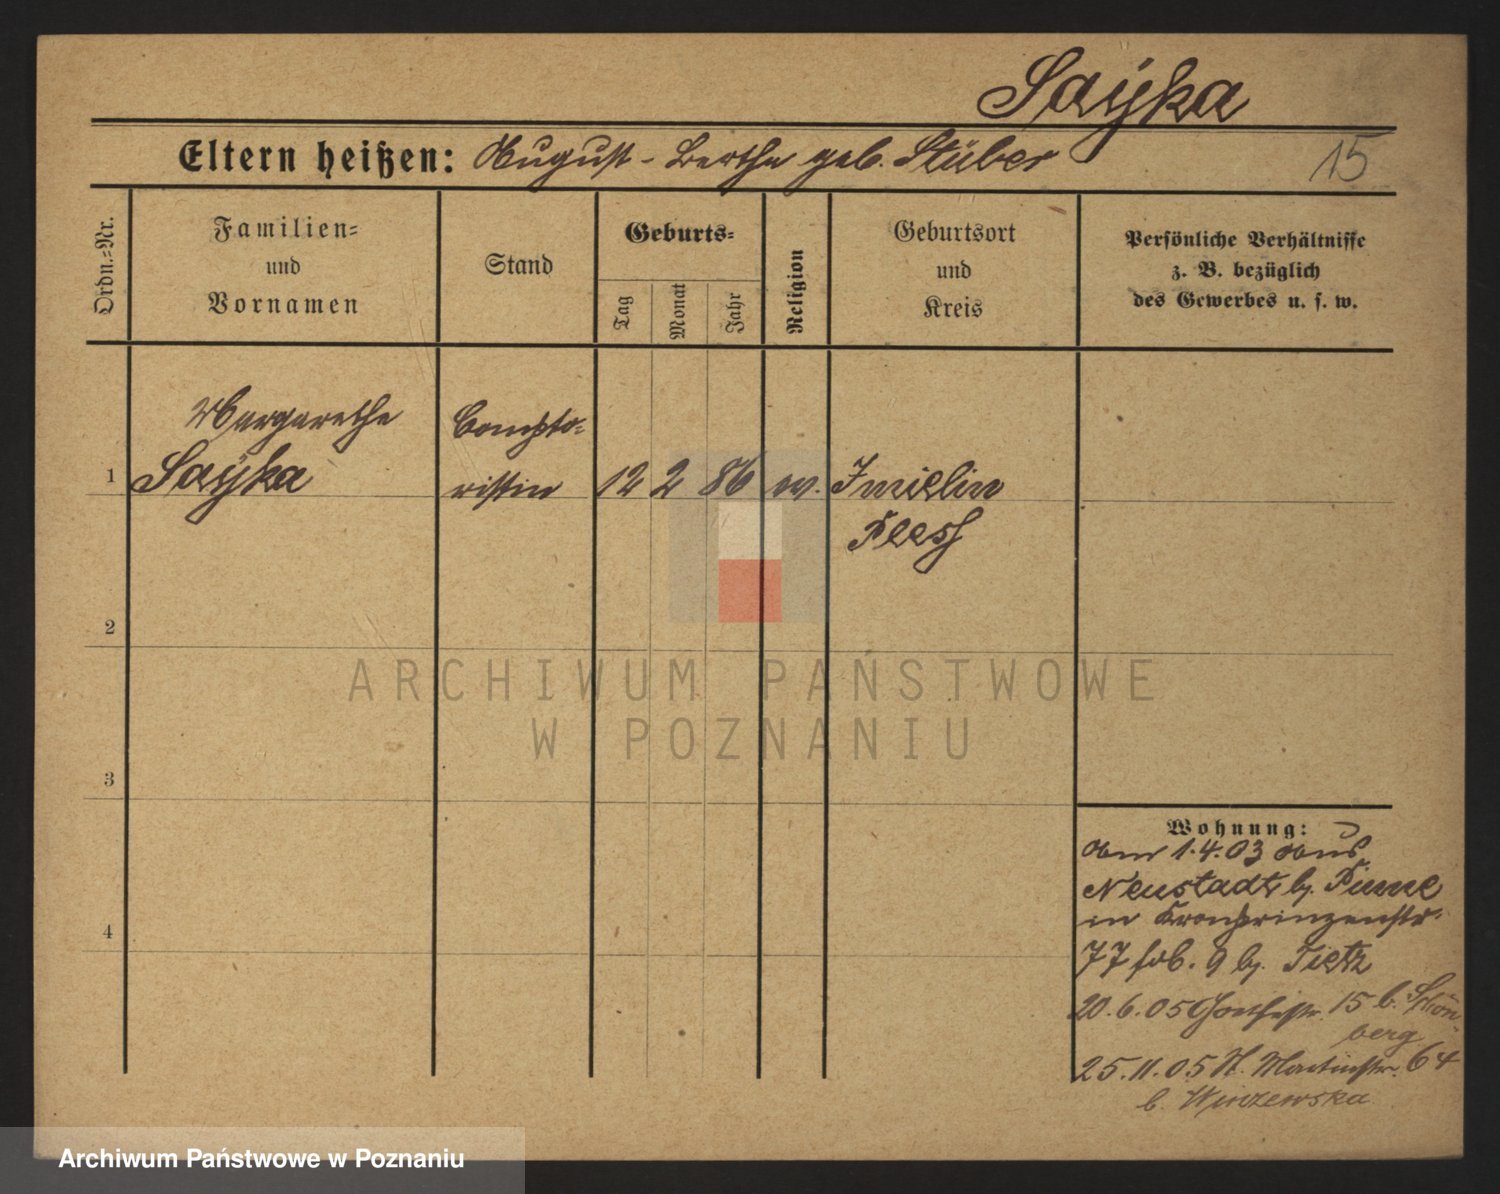 Sayka
Eltern heißen: August - Bertha geb. Stüber
15
Ordn.-Nr.
Familien-
und
Vornamen
Stand
Geburts-
Tag
Monat
Jahr
Religion
Geburtsort
und
Kreis
Persönliche Verhältnisse
z. B. bezüglich
des Gewerbes u. s. w.
Margarethe
Compto-
1 Sayka
ristin 12 2 86 ev. Imielin
Pless
2
ARCHIWUM PAŃSTWOWE
W POZNANIU
3
4
Wohnung:
1.4.03 aus
Neustadt b. Pinne
in Kronprinzenstr.
77 b. Tietz
20.6.05 Goethestr. 15 b. Schön-
berg
25.11.05 St. Martinstr. 64
b. Wirzewska
Archiwum Państwowe w Poznaniu